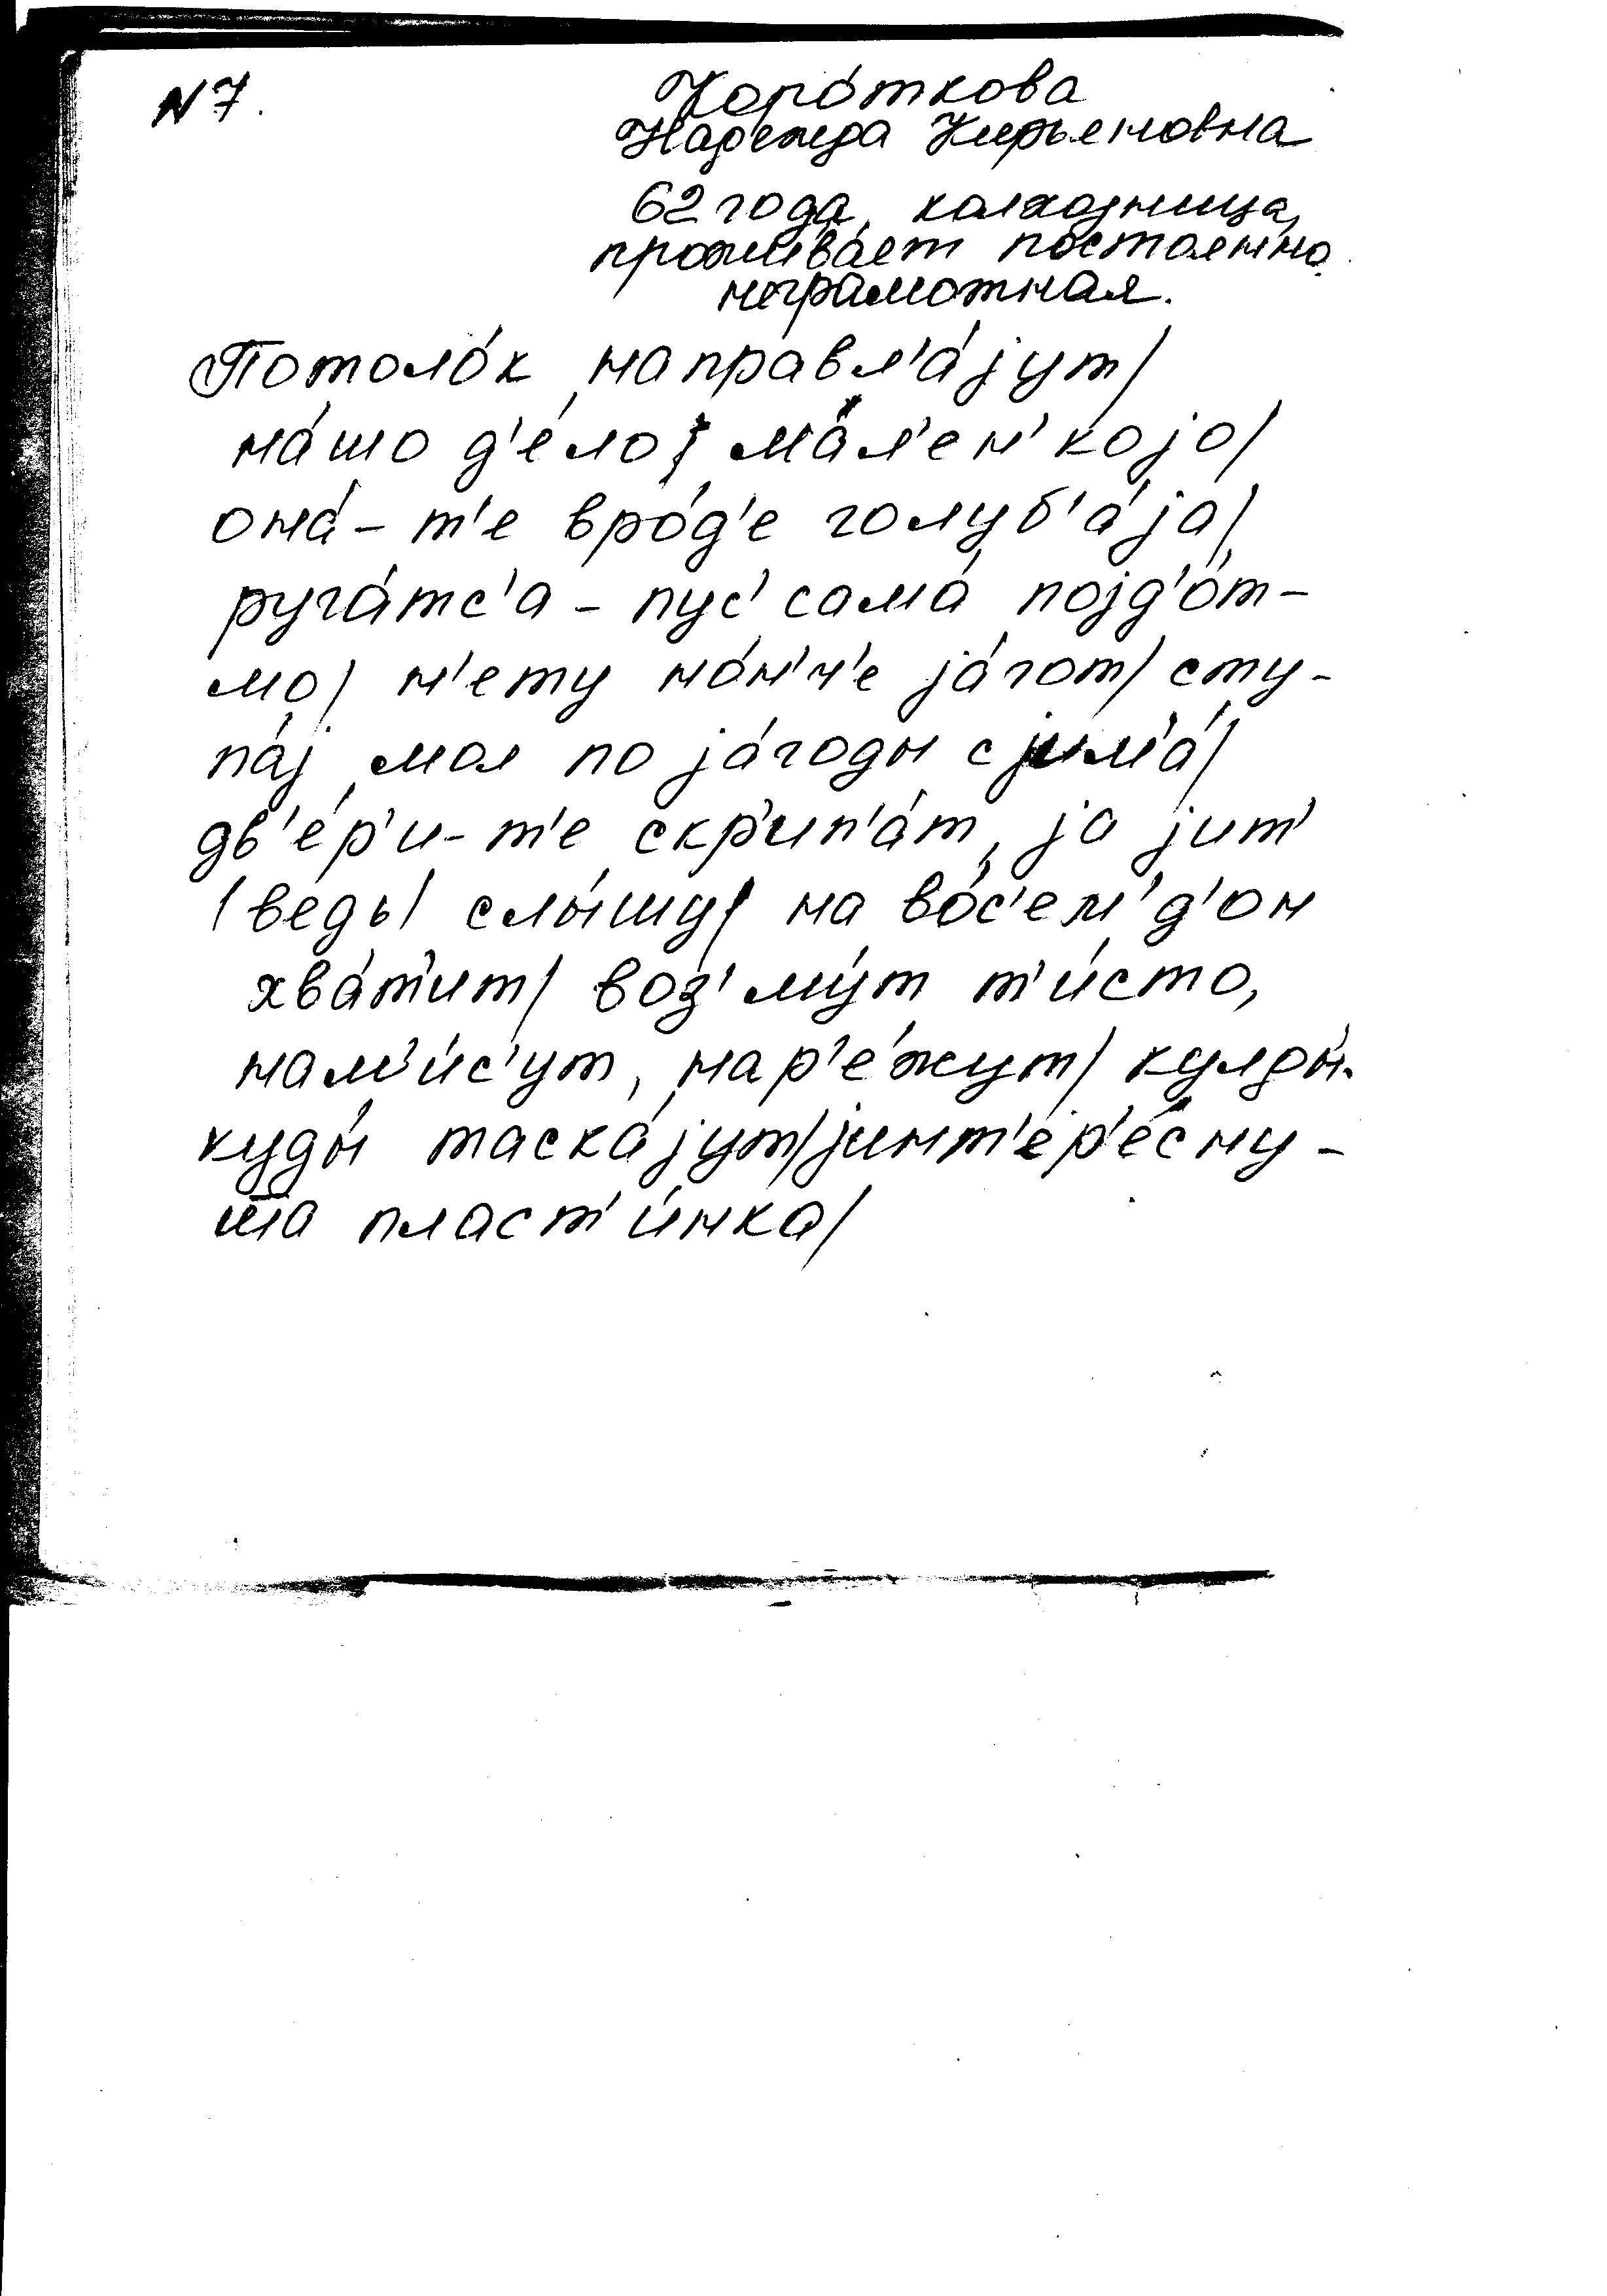 N 7.
Коро́ткова
Надежда Кирьяновна
62 года, колхозница,
проживает постоянно.
неграмотная.
Потоло́к направл'а́jут/
на́шо д'е́ло/ ма́л'ен'коjо/
она́-т'е вро́д'е голуб'а́jа/
руга́тс'а - пус' сама́ поjд'о́т-
мо/ н'ету но́н'ч'е jа́гот/ сту-
па́j моя по jа́годы с jим'а́/
дв'е́р'и-т'е скр'ип'а́т, jа jит'
/ведь/ слы́шу/ на во́с'ем' д'он
хва́т'ит/ воз'му́т т'и́сто,
нам'и́с'ут, нар'е́жут/ кулды́-
куды́ таска́jут/jинт'ер'е́сну-
ша пласт'и́нка/